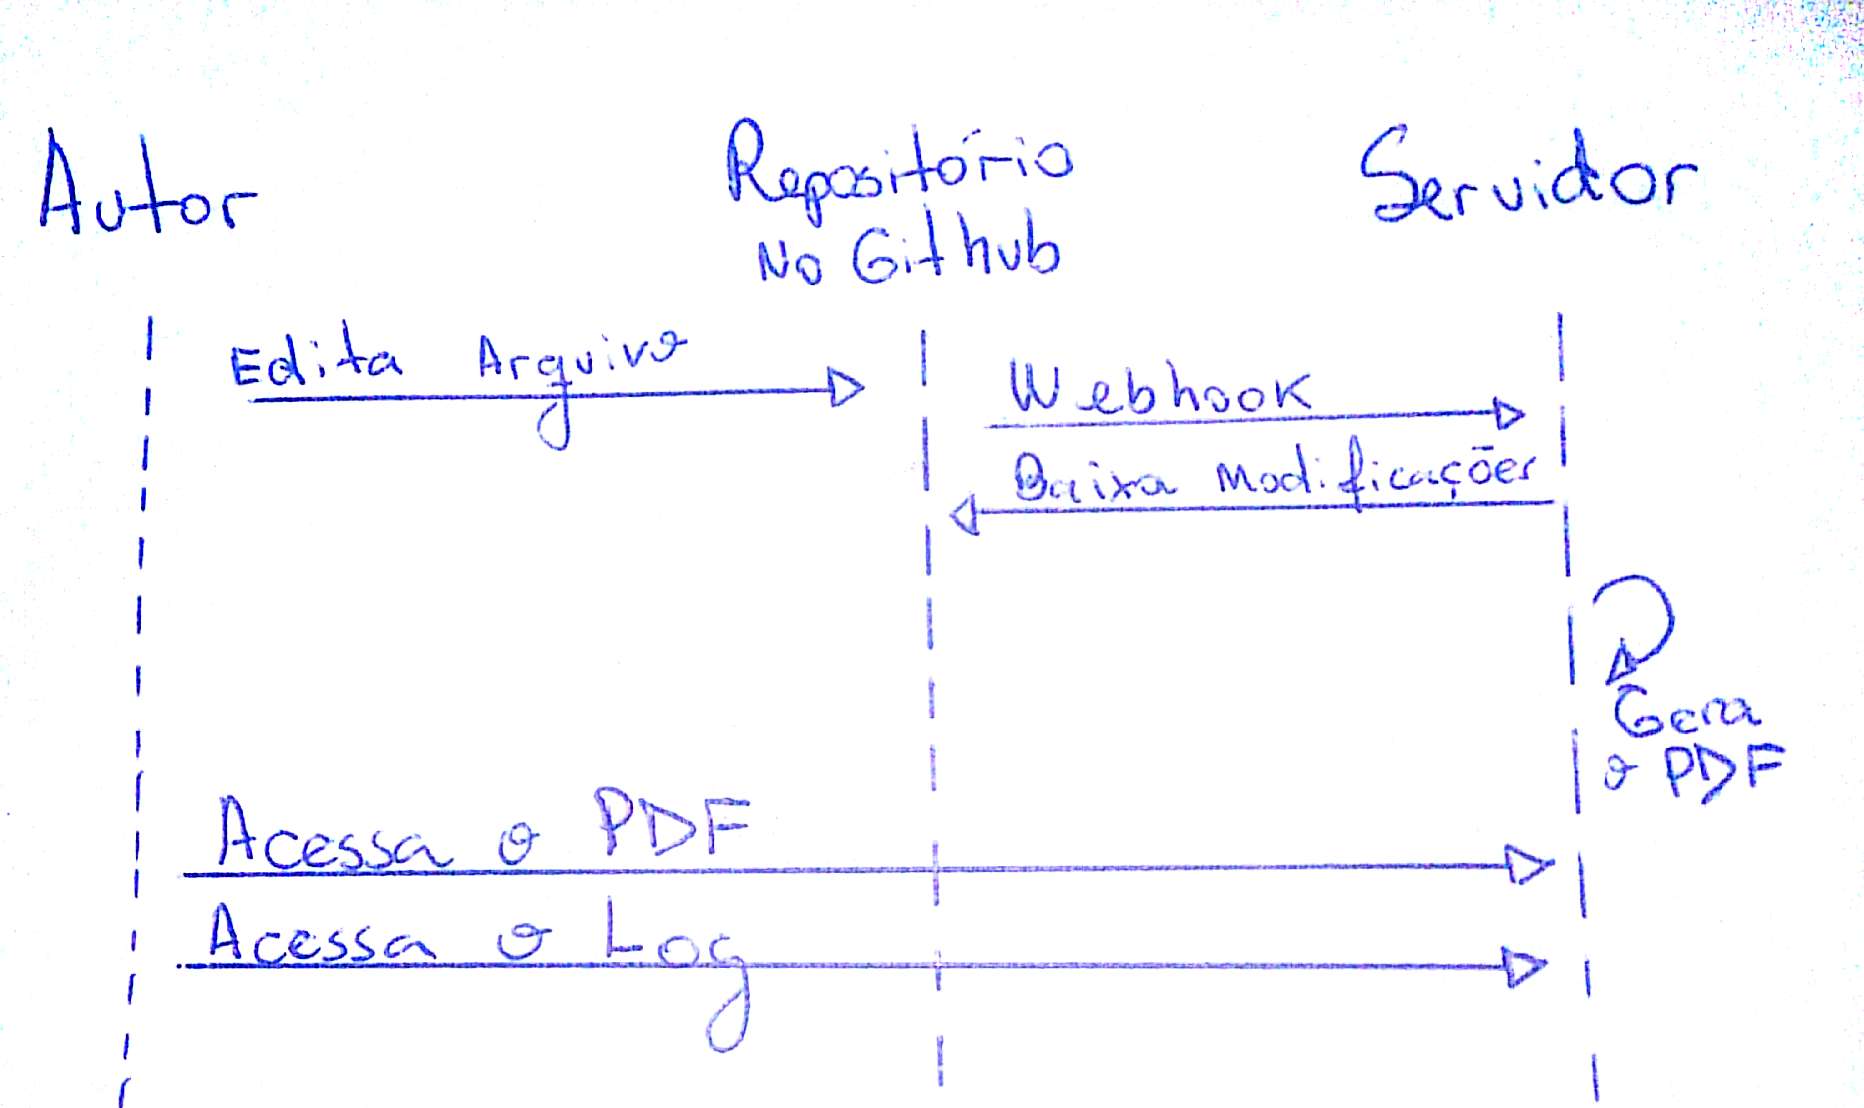 Autor
Repositório
No Github
Servidor
Edita Arquivo
Webhook
Baixa Modificações
Gera
o PDF
Acessa o PDF
Acessa o Log